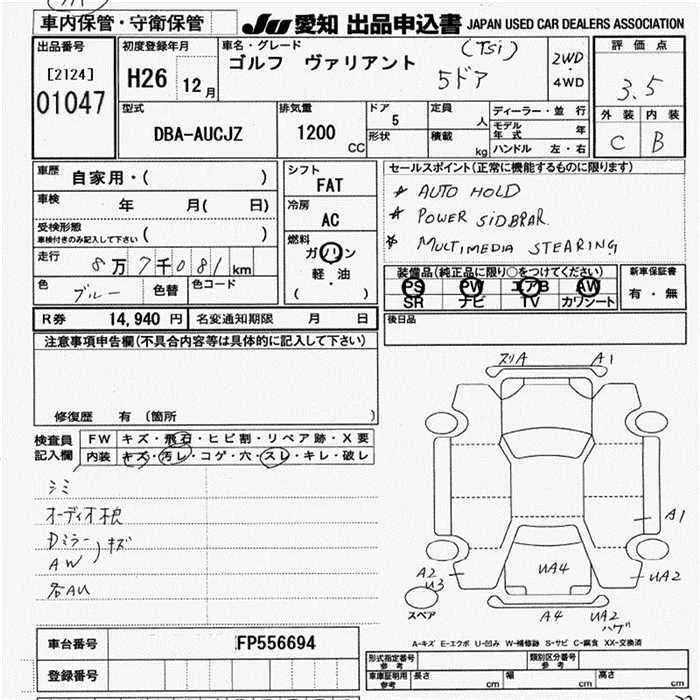 車内保管・守衛保管
JU 愛知 出品申込書 JAPAN USED CAR DEALERS ASSOCIATION
出品番号
[2124]
01047
初度登録年月
H26 12月
車名・グレード
ゴルフ ヴァリアント (TSi)
5ドア
2WD
4WD
評価点
3.5
外装 内装
C B
型式
DBA-AUCJZ
排気量
1200 CC
ドア
5
形状
定員
人
積載
kg
ディーラー・並行
モデル年式 年
ハンドル 左・右
車歴
自家用・( )
車検
年 月( 日)
受検形態
車検付きのみ記入して下さい ( )
走行
8万7千081km
色
ブルー
色替
色コード
シフト
FAT
冷房
AC
燃料
ガソリン
軽・油
( )
セールスポイント(正常に機能するものに限ります)
☆ AUTO HOLD
☆ POWER SIDBRAR
☆ MULTIMEDIA STEARING
装備品(純正品に限り○をつけてください)
PS PW エアB AW
SR ナビ TV カワシート
新車保証書
有・無
後日品
R券 14,940円
名変通知期限 月 日
注意事項申告欄(不具合内容等は具体的に記入して下さい)
修復歴 有 〔箇所 〕
検査員記入欄
FW キズ・飛石・ヒビ割・リペア跡・X要
内装 キズ・汚レ・コゲ・穴・スレ・キレ・破レ
シミ
オーディオ根
Dミラー
AW
キズ
各AU
スリA A1
A1
A2
U3
UA4
UA2
スペア
A4 UA2
ハゲ
A-キズ E-エクボ U-凹み W-補修跡 S-サビ C-腐食 XX-交換済
車台番号 FP556694
登録番号
形式指定番号
参考
類別区分番号
参考
車庫証明用
参考
長さ cm
幅 cm
高さ cm